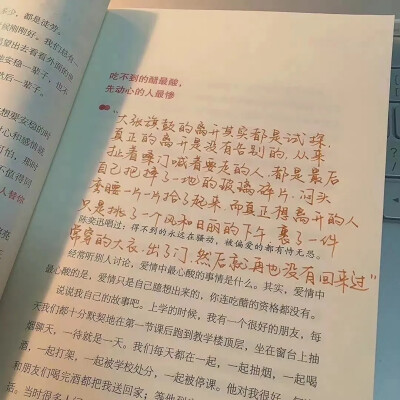 多少，都是徒劳。
候刚刚好。我们总角
望出去看看外面的世
安稳一辈子，也
后一辈子。
想要安稳的时
心和感情放
可怕，那时
不值得同
人替你
吃不到的醋最酸，
先动心的人最惨
“大张旗鼓的离开其实都是试探，
真正的离开是没有告别的，从来
扯着嗓门喊着要走的人，都是最后
自己把摔了一地的玻璃碎片，闷头
弯腰一片一片拾了起来，而真正想离开的人
只是挑了一个风和日丽的下午，裹了一件
陈奕迅唱过：得不到的永远在骚动，被偏爱的都有恃无恐。
常穿的大衣，出了门，然后就再也没有回来过”
经常听别人讨论，爱情中最心酸的事情是什么。其实，爱情中
最心酸的是，爱情只是自己随想出来的，你连吃醋的资格都没有。
说说我自己的故事吧。上学的时候，我有一个很好的朋友，每
天我们都十分默契地在第一节课后跑到教学楼顶层，坐在窗台上抽
烟聊天，一待就是一天。我们每天都在一起，一起抽烟，一起喝
酒，一起打架，一起被学校处分，一起被停课。他对我很好，每
和朋友们喝完酒都把我送回家；等他到
话。当时很多人